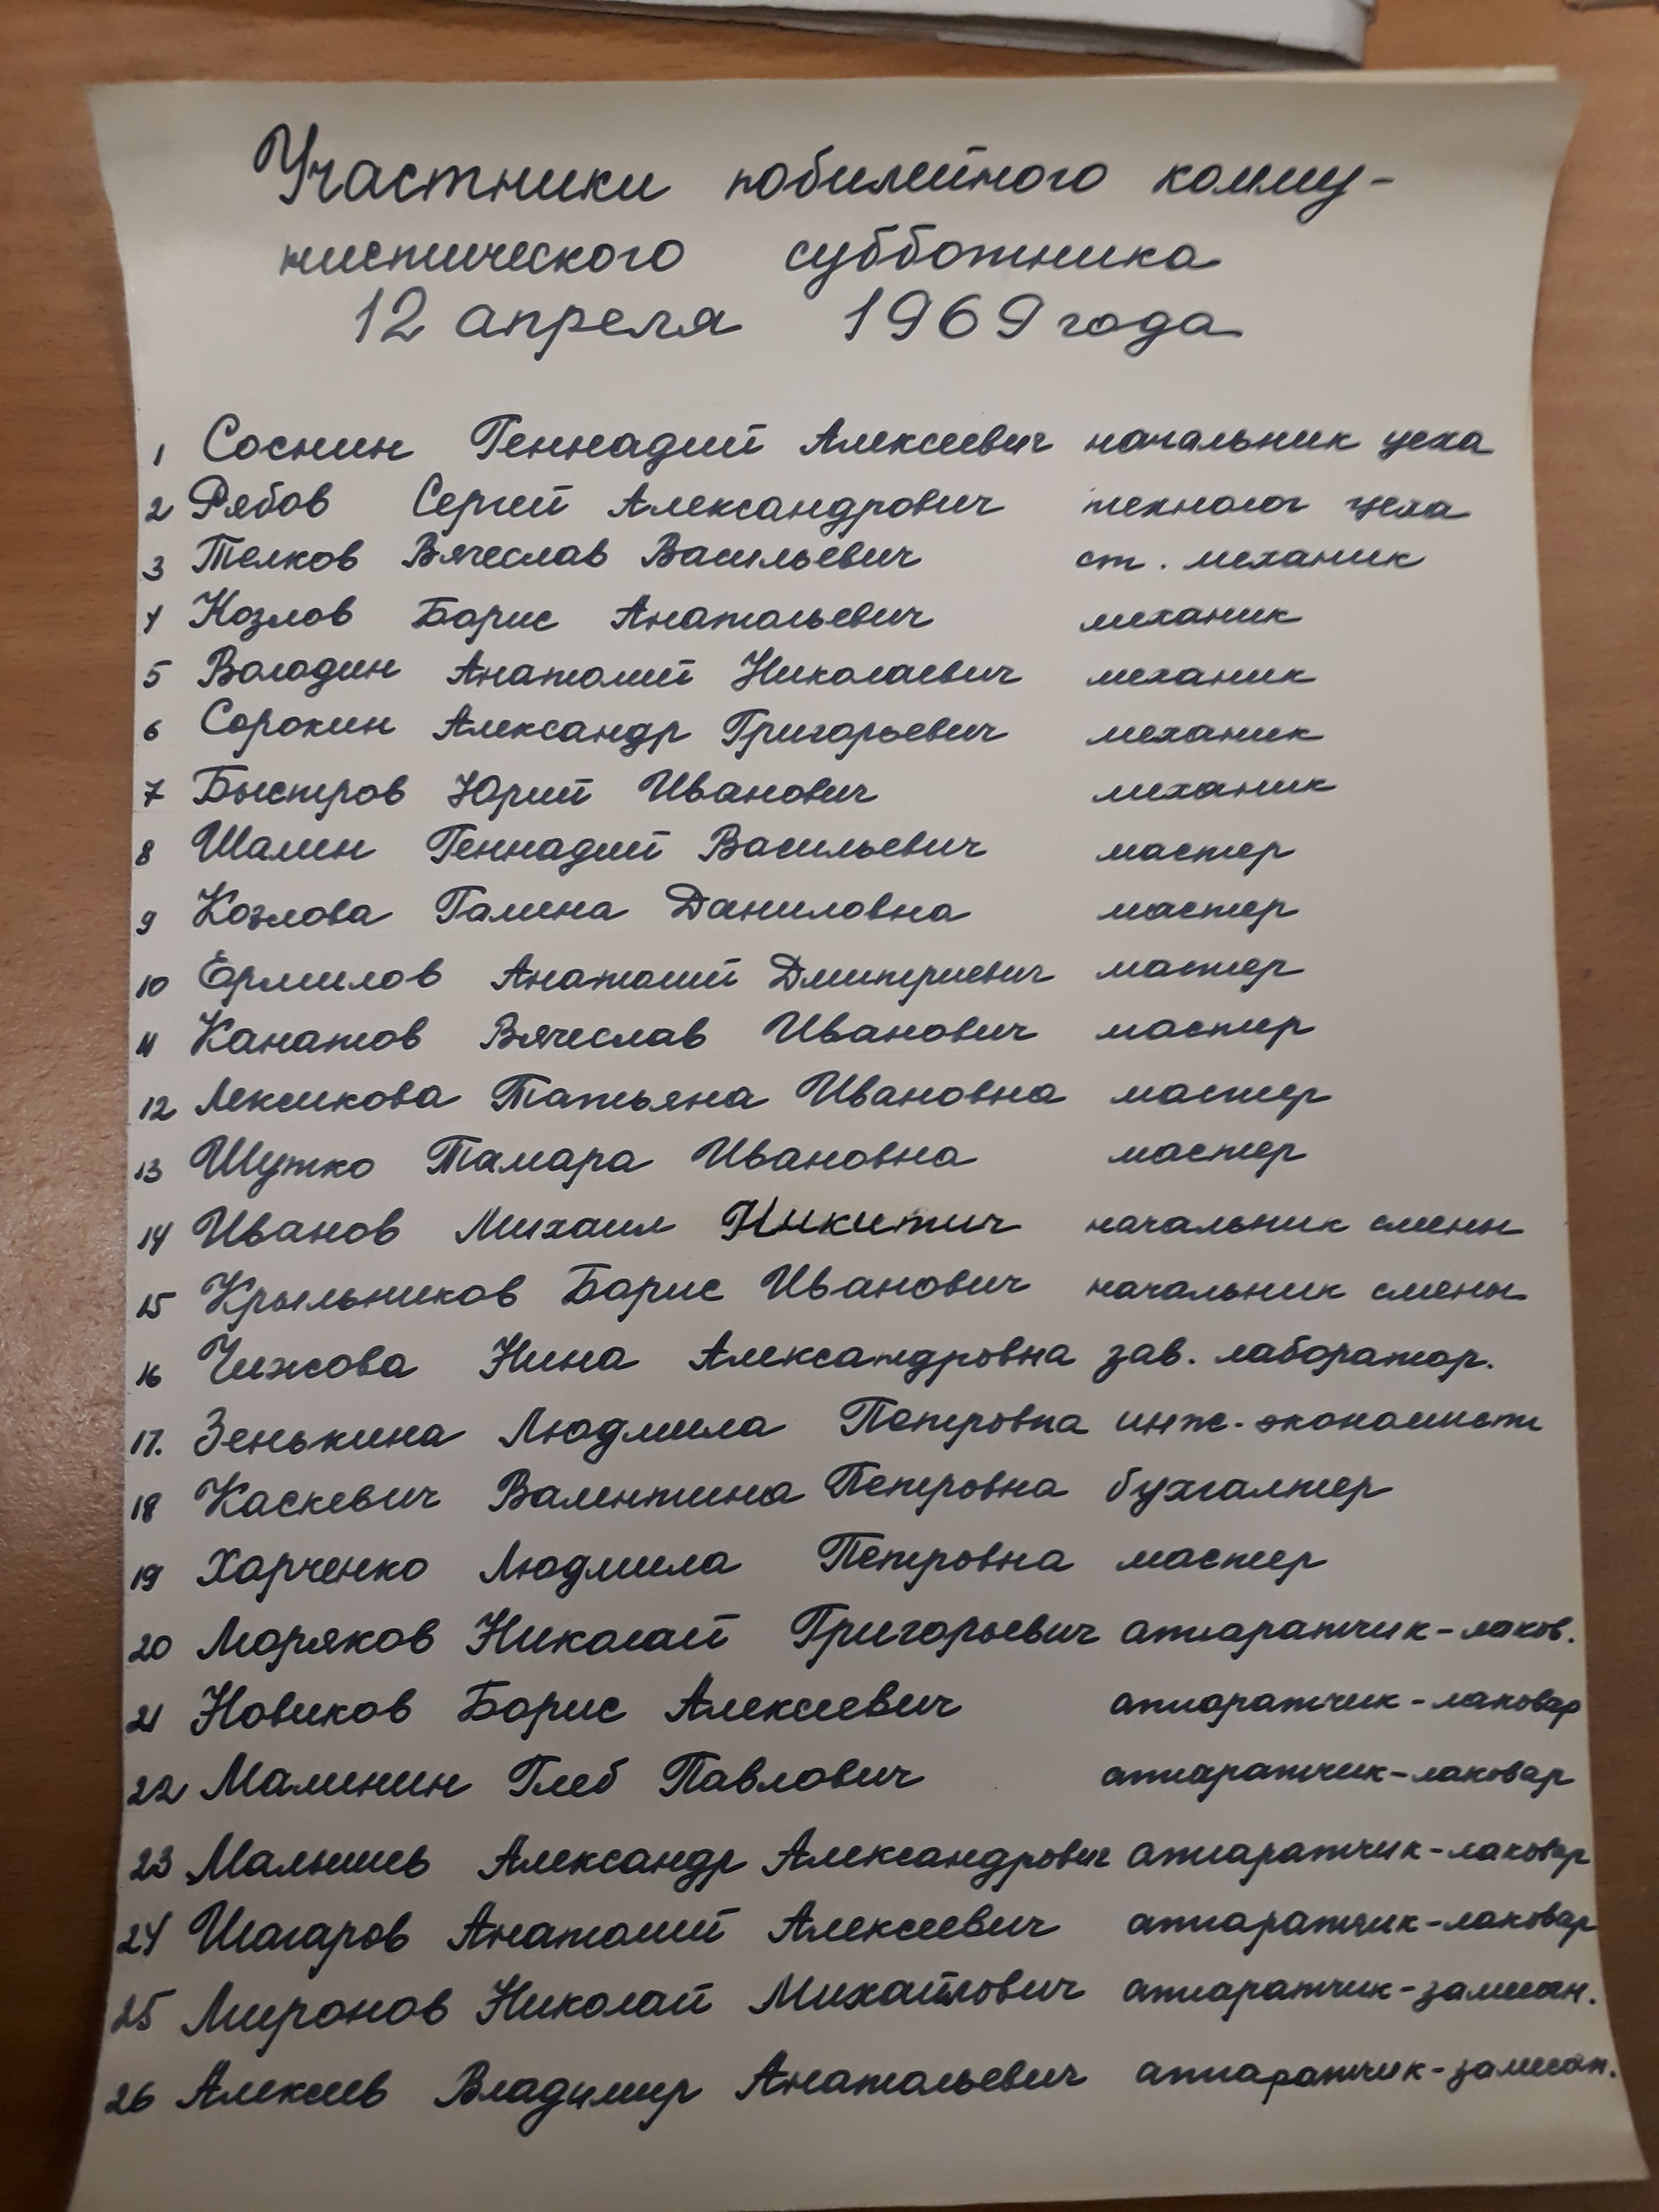 Участники юбилейного комму-
нистического субботника
12 апреля 1969 года
1 Соснин Геннадий Алексеевич начальник цеха
2 Рябов Сергей Александрович технолог цеха
3 Телков Вячеслав Васильевич ст. механик
4 Козлов Борис Анатольевич механик
5 Володин Анатолий Николаевич механик
6 Сорокин Александр Григорьевич механик
7 Быстров Юрий Иванович механик
8 Шалин Геннадий Васильевич мастер
9 Козлова Галина Даниловна мастер
10 Ермилов Анатолий Дмитриевич мастер
11 Канатов Вячеслав Иванович мастер
12 Лексикова Татьяна Ивановна мастер
13 Шутко Тамара Ивановна мастер
14 Иванов Михаил Никитич начальник смены
15 Крыльников Борис Иванович начальник смены
16 Чижова Нина Александровна зав. лаборатор.
17. Зенькина Людмила Петровна инж.-экономист
18 Каскевич Валентина Петровна бухгалтер
19 Харченко Людмила Петровна мастер
20 Моряков Николай Григорьевич аппаратчик-лаков.
21 Новиков Борис Алексеевич аппаратчик-лаковар
22 Малинин Глеб Павлович аппаратчик-лаковар
23 Малышев Александр Александрович аппаратчик-лаковар
24 Шагаров Анатолий Алексеевич аппаратчик-лаковар
25 Миронов Николай Михайлович аппаратчик-замешн.
26 Алексеев Владимир Анатольевич аппаратчик-